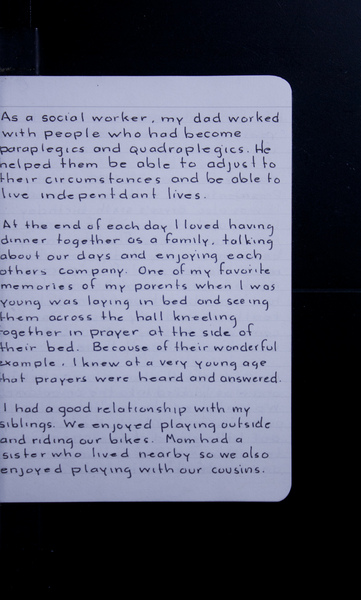 As a social worker, my dad worked
with people who had become
paraplegics and quadraplegics. He
helped them be able to adjust to
their circumstances and be able to
live indepentdant lives.
At the end of each day I loved having
dinner together as a family, talking
about our days and enjoying each
others company. One of my favorite
memories of my parents when I was
young was laying in bed and seeing
them across the hall kneeling
together in prayer at the side of
their bed. Because of their wonderful
example, I knew at a very young age
that prayers were heard and answered.
I had a good relationship with my
siblings. We enjoyed playing outside
and riding our bikes. Mom had a
sister who lived nearby so we also
enjoyed playing with our cousins.